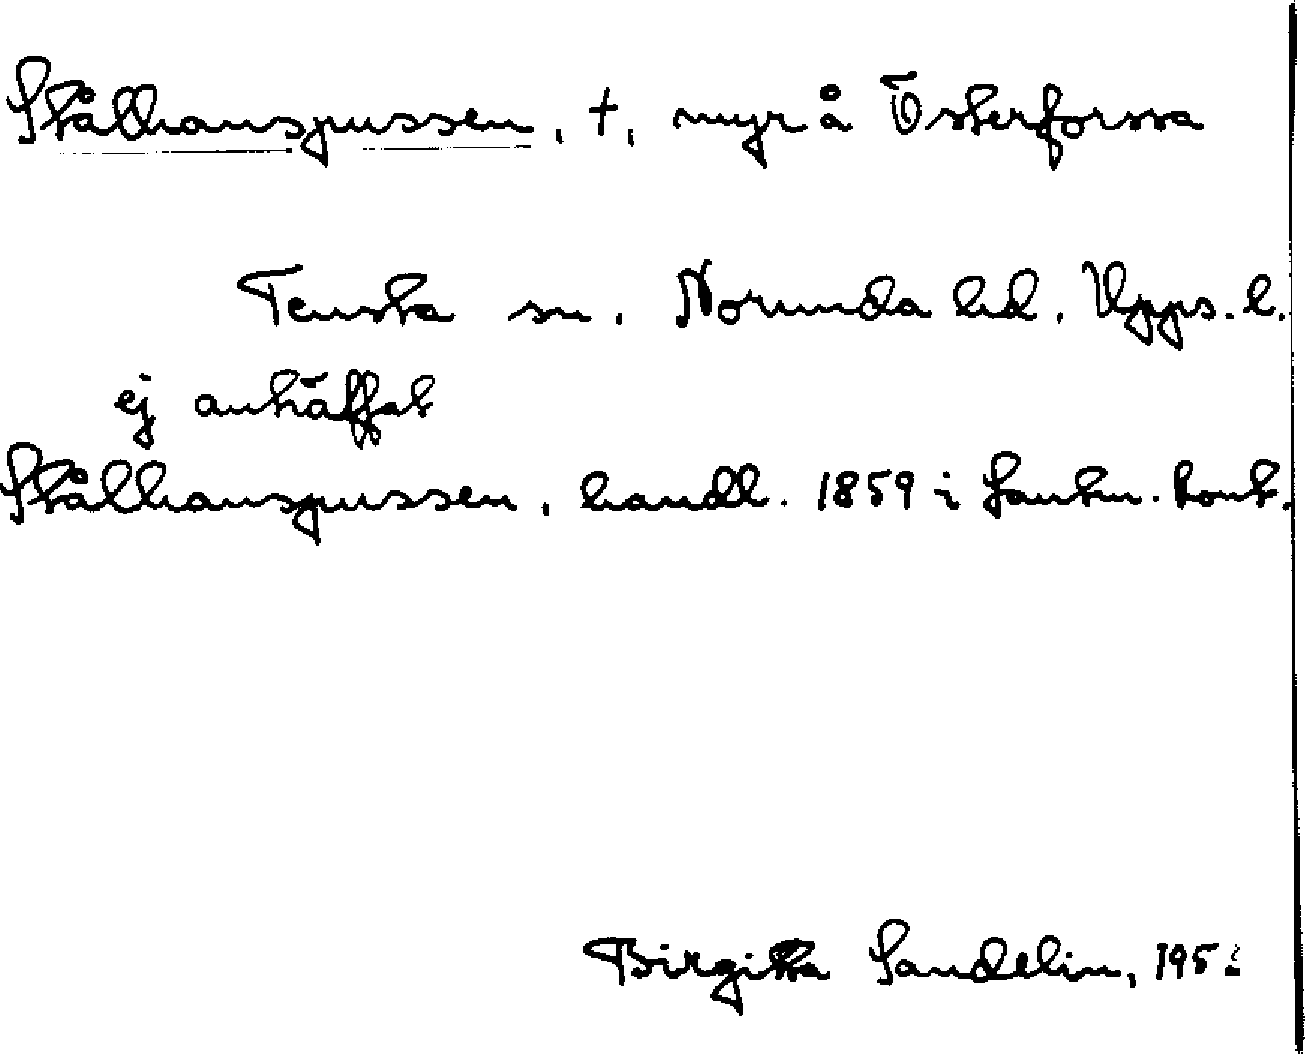 Stålhanspussen, t, myr å Österforssa
Tensta sn. Norunda hd. Upps. l.
ej anträffat
Stålhanspussen, handl. 1859 i Lantm. kont.
Birgitta Sandelin,